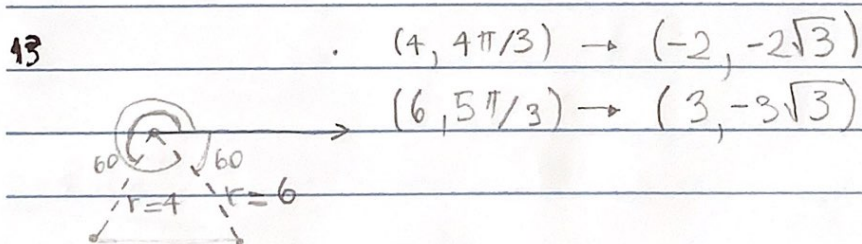 13 . (4, 4π/3) → (-2, -2√3)
(6, 5π/3) → (3, -3√3)
60 60
r=4 r=6